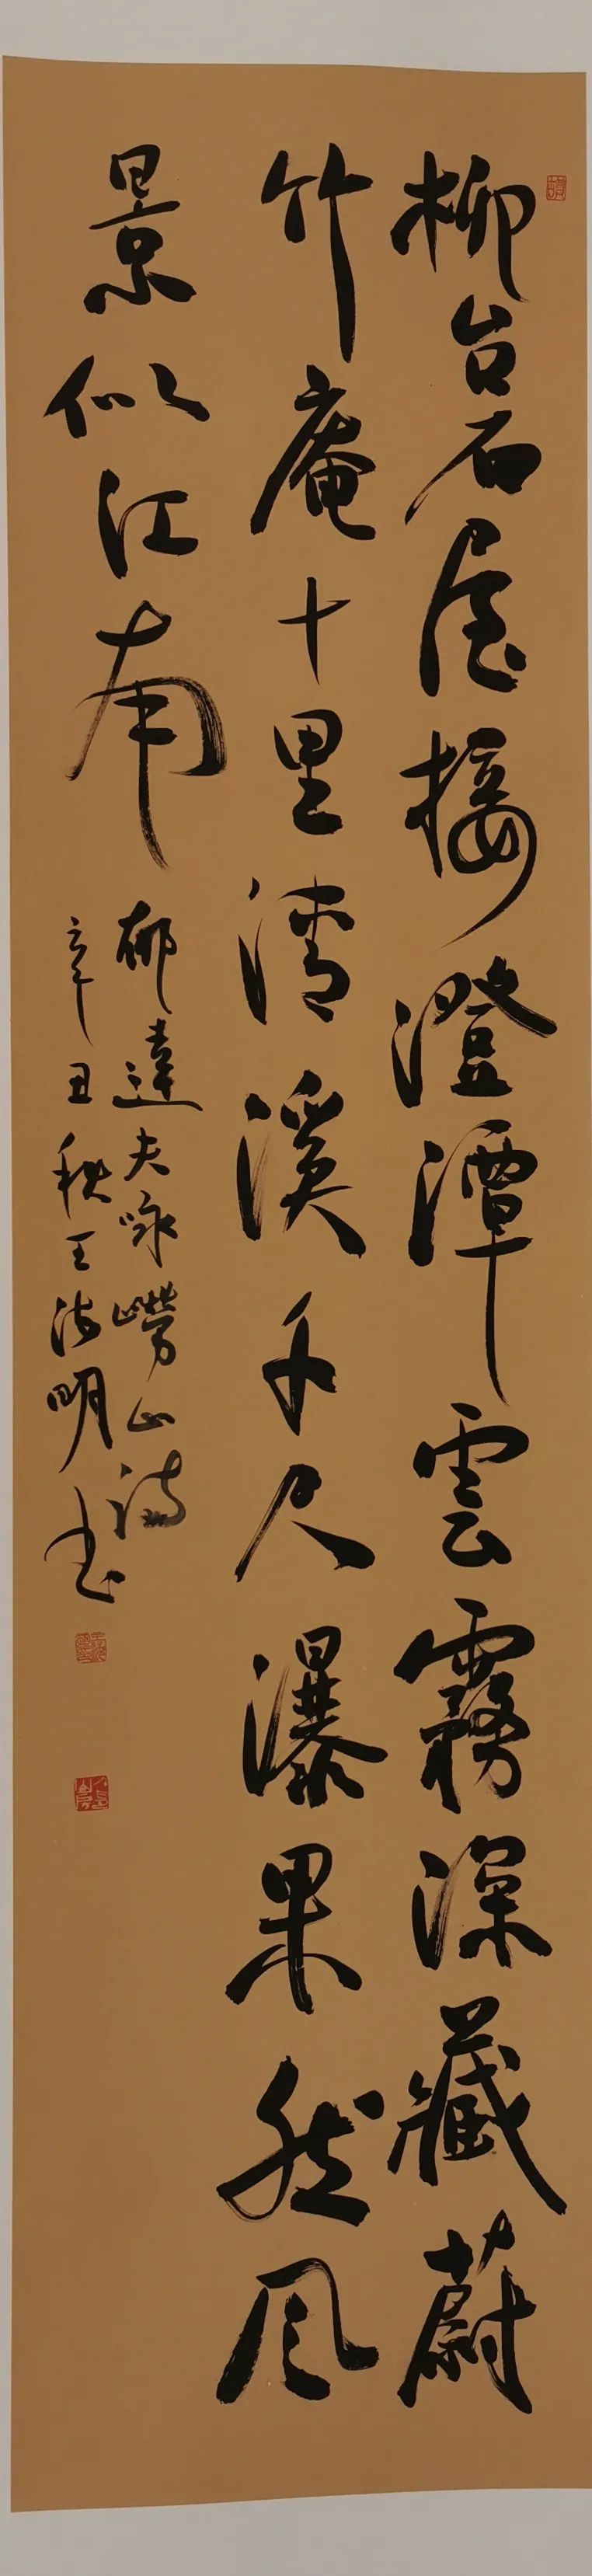 柳台石屋接澄潭雲霧深藏蔚
竹庵十里清溪千尺瀑果然风
景似江南
郁達夫咏嶗山诗
辛丑秋王海明书